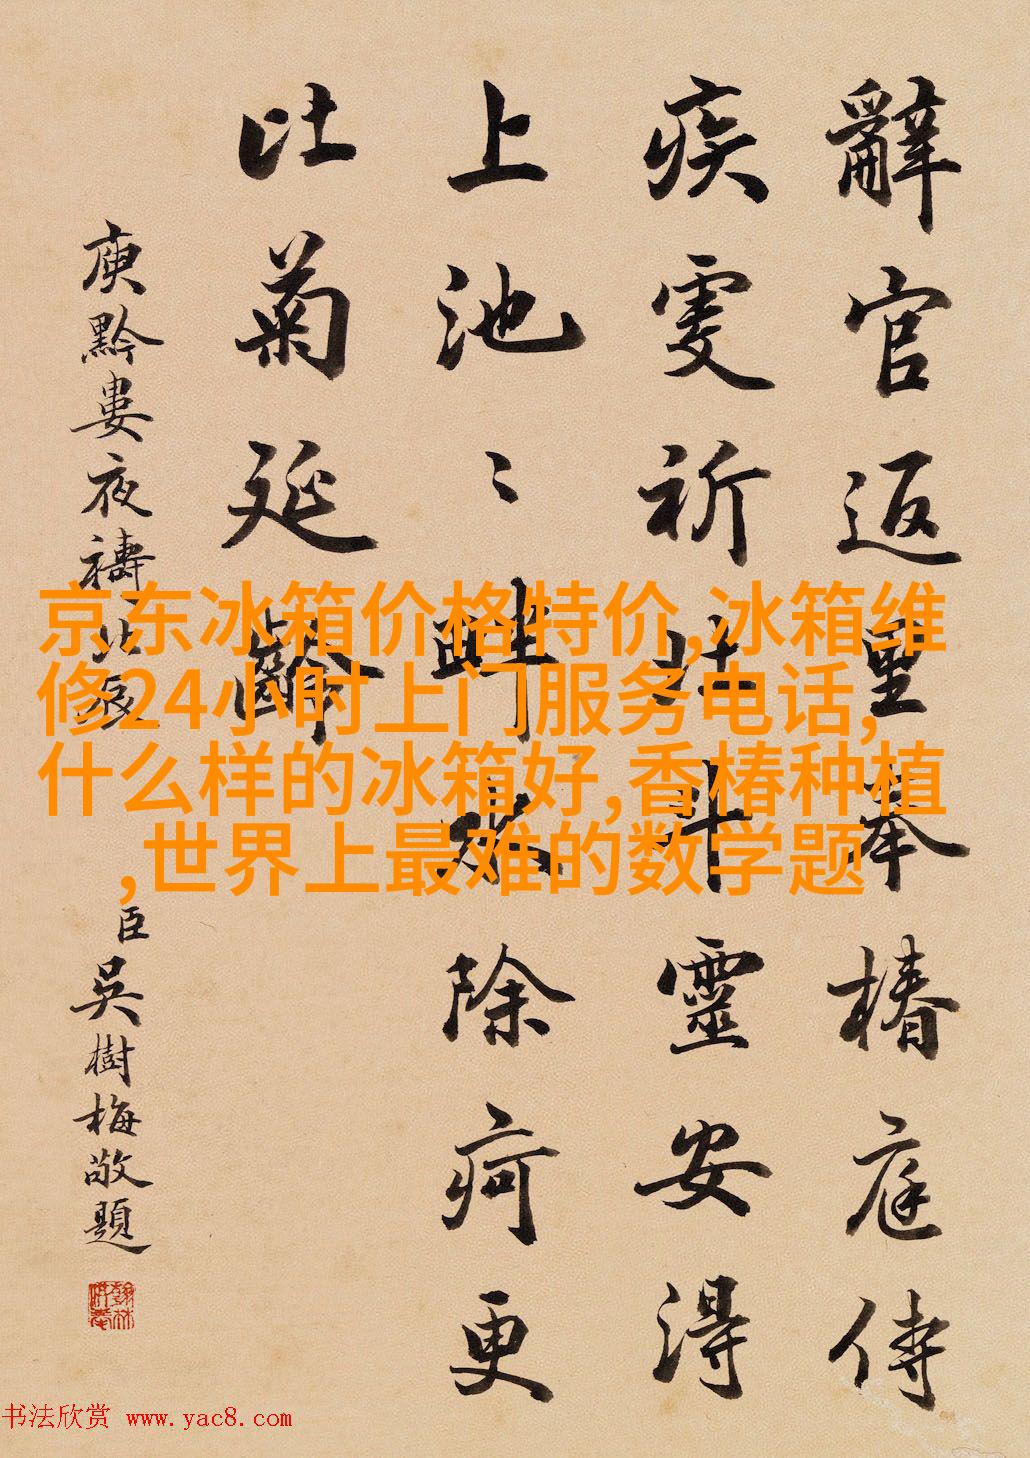 辭官返里奉椿庭侍
疾雯祈北斗靈安得
上池〻畔水除疴更
比菊延齡
庾黔婁夜禱北辰
臣吳樹梅敬題
京东冰箱价格特价,冰箱维
修24小时上门服务电话,
什么样的冰箱好,香椿种植
,世界上最难的数学题
书法欣赏 www.yac8.com